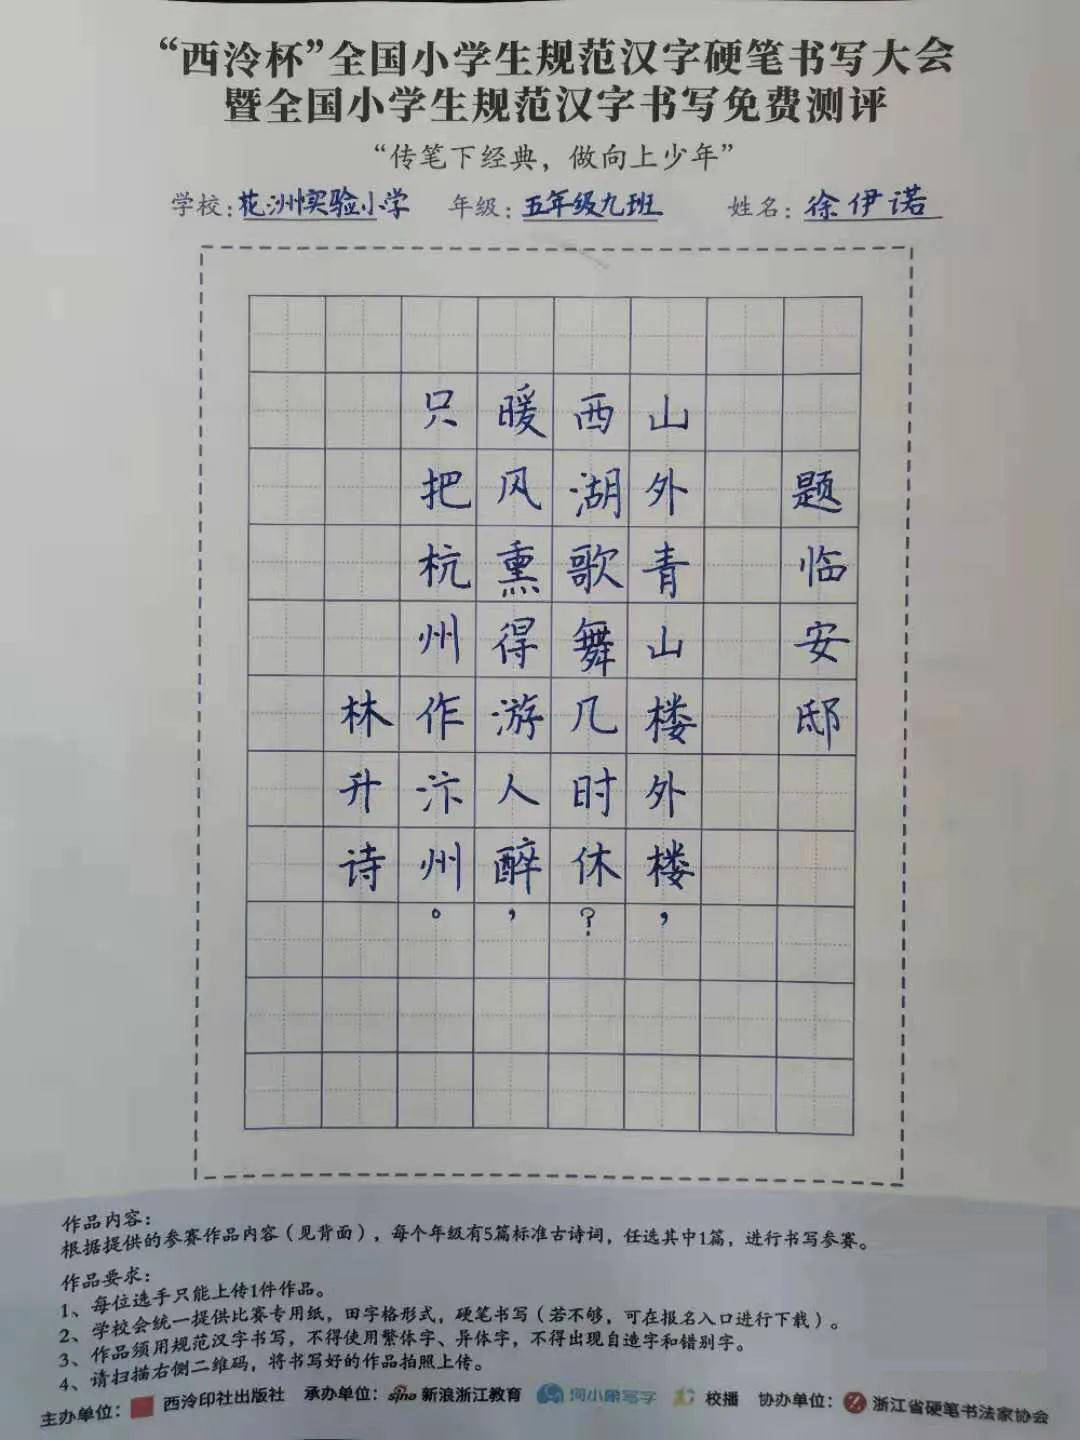 “西泠杯”全国小学生规范汉字硬笔书写大会
暨全国小学生规范汉字书写免费测评
“传笔下经典，做向上少年”
学校：花洲实验小学 年级：五年级九班 姓名：徐伊诺
题临安邸
山外青山楼外楼，
西湖歌舞几时休？
暖风熏得游人醉，
只把杭州作汴州。
林升诗
作品内容：
根据提供的参赛作品内容（见背面），每个年级有5篇标准古诗词，任选其中1篇，进行书写参赛。
作品要求：
1、每位选手只能上传1件作品。
2、学校会统一提供比赛专用纸，田字格形式，硬笔书写（若不够，可在报名入口进行下载）。
3、作品须用规范汉字书写，不得使用繁体字、异体字，不得出现自造字和错别字。
4、请扫描右侧二维码，将书写好的作品拍照上传。
主办单位： 西泠印社出版社 承办单位： sina 新浪浙江教育 河小象写字 校播 协办单位： 浙江省硬笔书法家协会